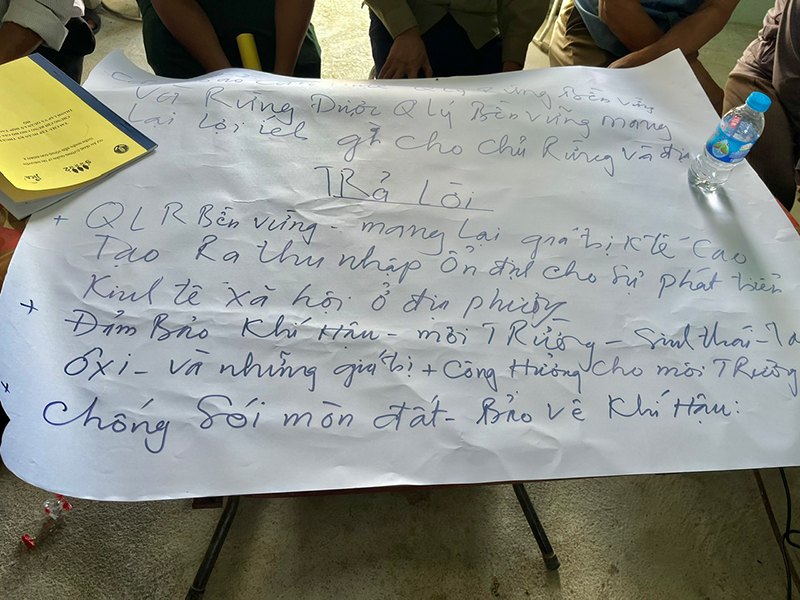 Rừng Bền vững
Và Rừng Được QLý Bền vững mang
lại lợi ích gì cho chủ Rừng và địa
TRả Lời
+ QLR Bền vững - mang lại giá trị K tế Cao
Tạo Ra thu nhập ổn định cho sự phát triển
Kinh tế xã hội ở địa phương
+ Đảm Bảo Khí Hậu - môi TRường - Sinh thái - Tạ
Ôxi - và những giá trị + Cộng Hưởng cho môi TRường
chống Sói mòn đất - Bảo vệ Khí Hậu: